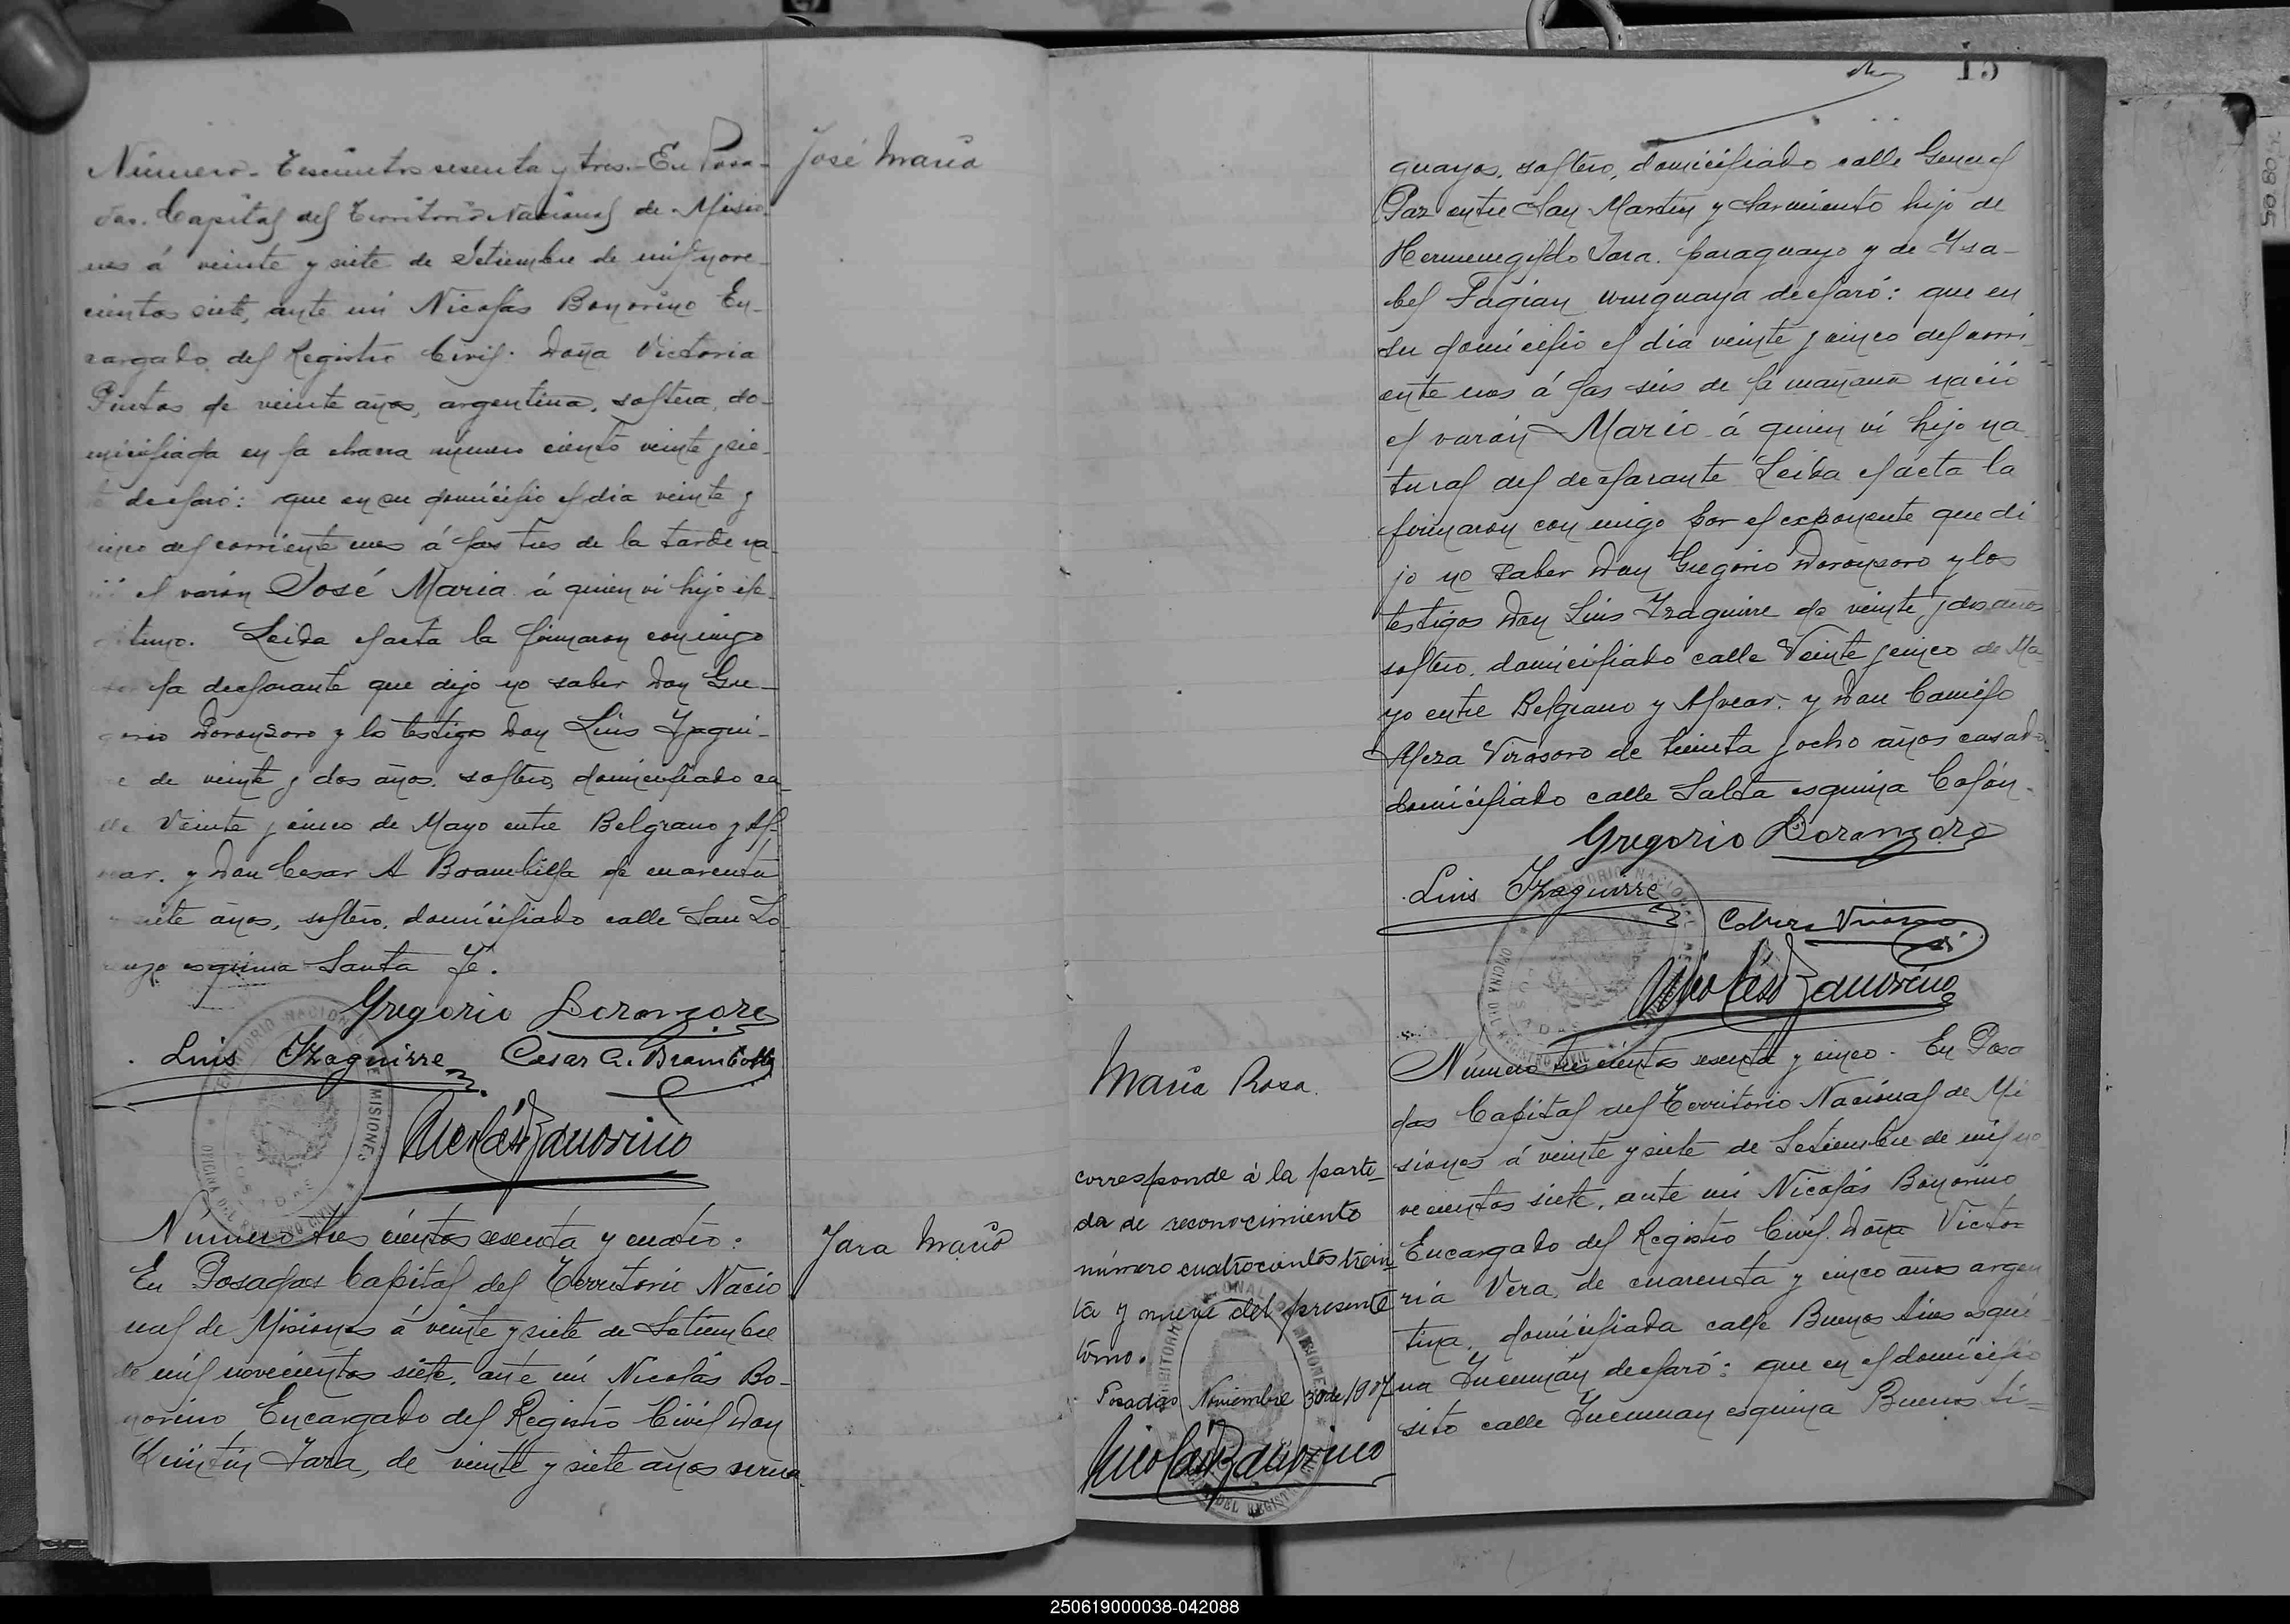 José Maria
Número Trescientos sesenta y tres.- En Posa-
das. Capital del Territorio Nacional de Misio-
nes á veinte y siete de Setiembre de mil nove-
cientos siete, ante mi Nicolás Bonorino En-
cargado del Registro Civil. Doña Victoria
Pintos de veinte años, argentina, soltera, do-
miciliada en la chacra número ciento veinte y sie-
te declaró: que en su domicilio el dia veinte y
cinco del corriente mes á las tres de la tarde na-
ció el varón José Maria á quien vi hijo ile-
gitimo. Leida el acta la firmaron conmigo
por la declarante que dijo no saber Don Gre-
gorio Doronzoro y los testigos Don Luis Yzagui-
rre de veinte y dos años. soltero, domiciliado ca-
lle Veinte y cinco de Mayo entre Belgrano y Al-
vear. y Don Cesar A Brambilla de cuarenta
y siete años, soltero, domiciliado calle San Lo-
renzo esquina Santa Fé.
Gregorio Doronzoro
Luis Yzaguirre Cesar A. Brambilla
Nicolás Bonorino
TERRITORIO NACIONAL DE MISIONES
OFICINA DEL REGISTRO CIVIL
POSADAS
Jara Mario
Número tres cientos sesenta y cuatro:
En Posadas Capital del Territorio Nacio
nal de Misiones á veinte y siete de Setiembre
de mil novecientos siete, ante mi Nicolás Bo-
norino Encargado del Registro Civil Don
Quintin Jara, de veinte y siete años
15
guayo, soltero, domiciliado calle General
Paz entre San Martin y Sarmiento hijo de
Hermenegildo Jara. paraguayo y de Ysa-
bel Fagian uruguaya declaró: que en
su domicilio el dia veinte y cinco del corri-
ente mes á las seis de la mañana nació
el varón Mario á quien vi hijo na
tural del declarante Leida el acta la
firmaron con migo por el exponente que di
jo no saber Don Gregorio Doronzoro y los
testigos Don Luis Yzaguirre de veinte y dos años
soltero. domiciliado calle Veinte y cinco de Ma-
yo entre Belgrano y Alvear. y Don Camilo
Virasoro de treinta y ocho años casado.
domiciliado calle Salta esquina Colón.
Gregorio Doronzoro
Luis Yzaguirre
Virasoro
Nicolás Bonorino
TERRITORIO NACIONAL DE MISIONES
OFICINA DEL REGISTRO CIVIL
POSADAS
Maria Rosa.
corresponde á la parti-
da de reconocimiento
número cuatrocientos trein-
ta y nueve del presente
tomo.
Posadas Noviembre 30 de 1907
Nicolás Bonorino
Número tres cientos sesenta y cinco. En Posa
das Capital del Territorio Nacional de Mi
siones á veinte y siete de Setiembre de mil no
vecientos siete, ante mi Nicolás Bonorino
Encargado del Registro Civil. Doña Victo-
ria Vera, de cuarenta y cinco años argen
tina, domiciliada calle Buenos Aires esqui
na Tucumán declaró: que en el domicilio
sito calle Tucuman esquina Buenos Ai-
250619000038-042088